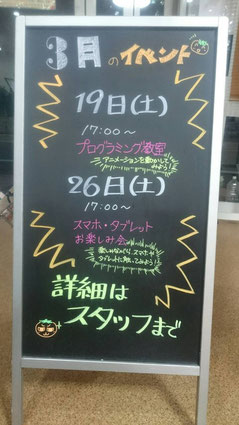 3月のイベント
19日(土)
17:00～
プログラミング教室
アニメーションを動かして
みよう！
26日(土)
17:00～
スマホ・タブレット
お楽しみ会
楽しみながら、スマホや
タブレットに触ってみよう！
詳細は
スタッフまで